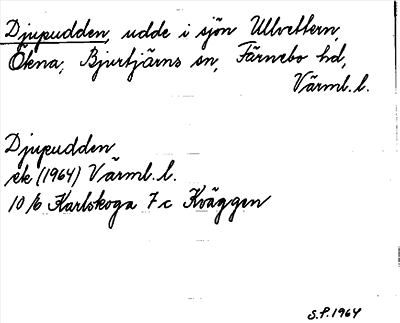 Djupudden, udde i sjön Ullvettern,
Ökna, Bjurtjärns sn, Färnebo hd,
Värml. l.
Djupudden
ek (1964) Värml. l.
10/6 Karlskoga 7c Kväggen
S.P. 1964